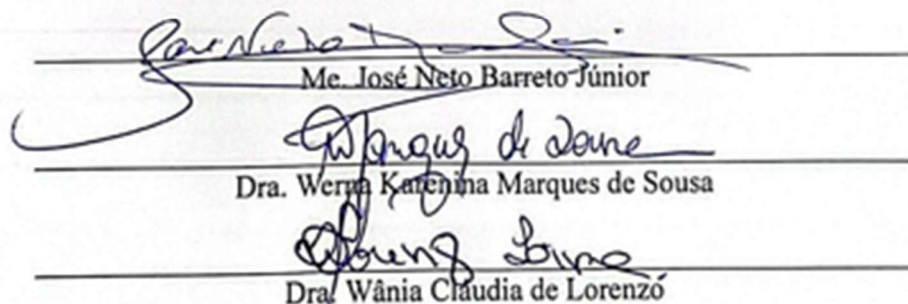 Me. José Neto Barreto Júnior
Marques de Sousa
Dra. Werna Karenina Marques de Sousa
Dra. Wânia Cláudia de Lorenzo